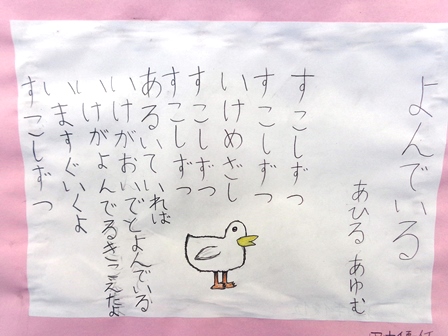 よんでいる
あひる あゆむ
すこしずつ
すこしずつ
いけめざし
すこしずつ
すこしずつ
あるいていれば
いけがおいでとよんでいる
いけがよんでるきこえたよ
いますぐいくよ
すこしずつ